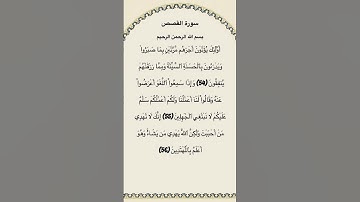 سورة القصص
بسم الله الرحمن الرحيم
أُوْلَٰٓئِكَ يُؤْتَوْنَ أَجْرَهُم مَّرَّتَيْنِ بِمَا صَبَرُواْ
وَيَدْرَءُونَ بِٱلْحَسَنَةِ ٱلسَّيِّئَةَ وَمِمَّا رَزَقْنَٰهُمْ
يُنفِقُونَ (54) وَإِذَا سَمِعُواْ ٱللَّغْوَ أَعْرَضُواْ
عَنْهُ وَقَالُواْ لَنَآ أَعْمَٰلُنَا وَلَكُمْ أَعْمَٰلُكُمْ سَلَٰمٌ
عَلَيْكُمْ لَا نَبْتَغِى ٱلْجَٰهِلِينَ (55) إِنَّكَ لَا تَهْدِى
مَنْ أَحْبَبْتَ وَلَٰكِنَّ ٱللَّهَ يَهْدِى مَن يَشَآءُ وَهُوَ
أَعْلَمُ بِٱلْمُهْتَدِينَ (56)